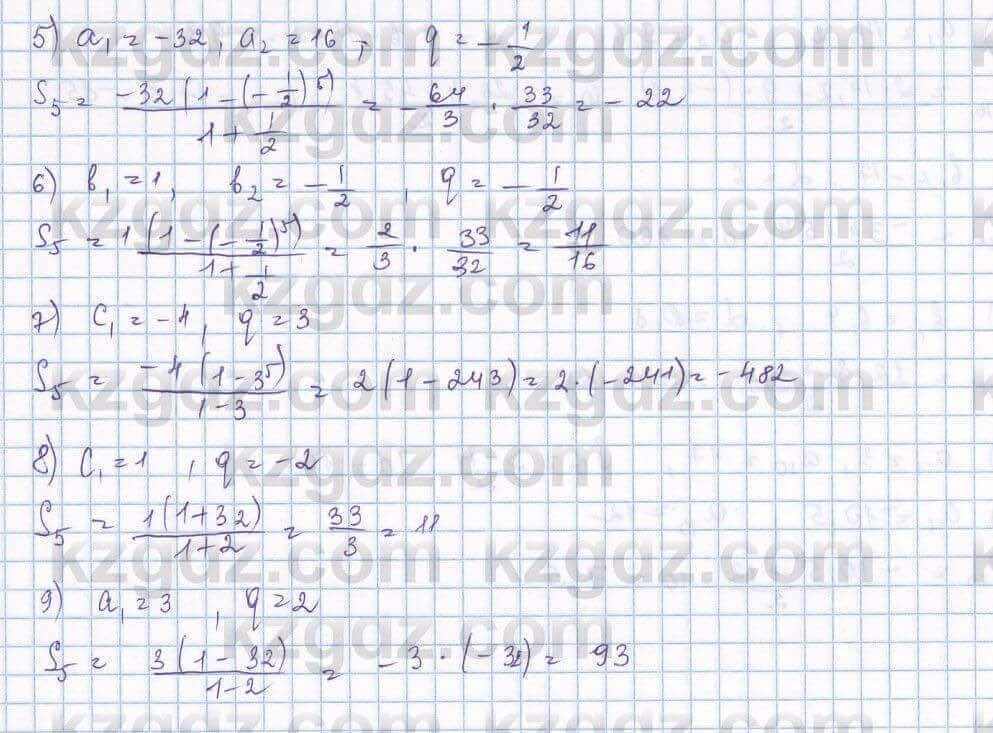 5) a₁ = -32, a₂ = 16, q = -1/2
S₅ = -32(1-(-1/2)⁵)/(1+1/2) = -64/3 · 33/32 = -22
6) b₁ = 1, b₂ = -1/2, q = -1/2
S₅ = 1(1-(-1/2)⁵)/(1+1/2) = 2/3 · 33/32 = 11/16
7) C₁ = -4, q = 3
S₅ = -4(1-3⁵)/(1-3) = 2(1-243) = 2·(-241) = -482
8) C₁ = 1, q = -2
S₅ = 1(1+32)/(1+2) = 33/3 = 11
9) a₁ = 3, q = 2
S₅ = 3(1-32)/(1-2) = -3·(-31) = 93
kzgdz.com